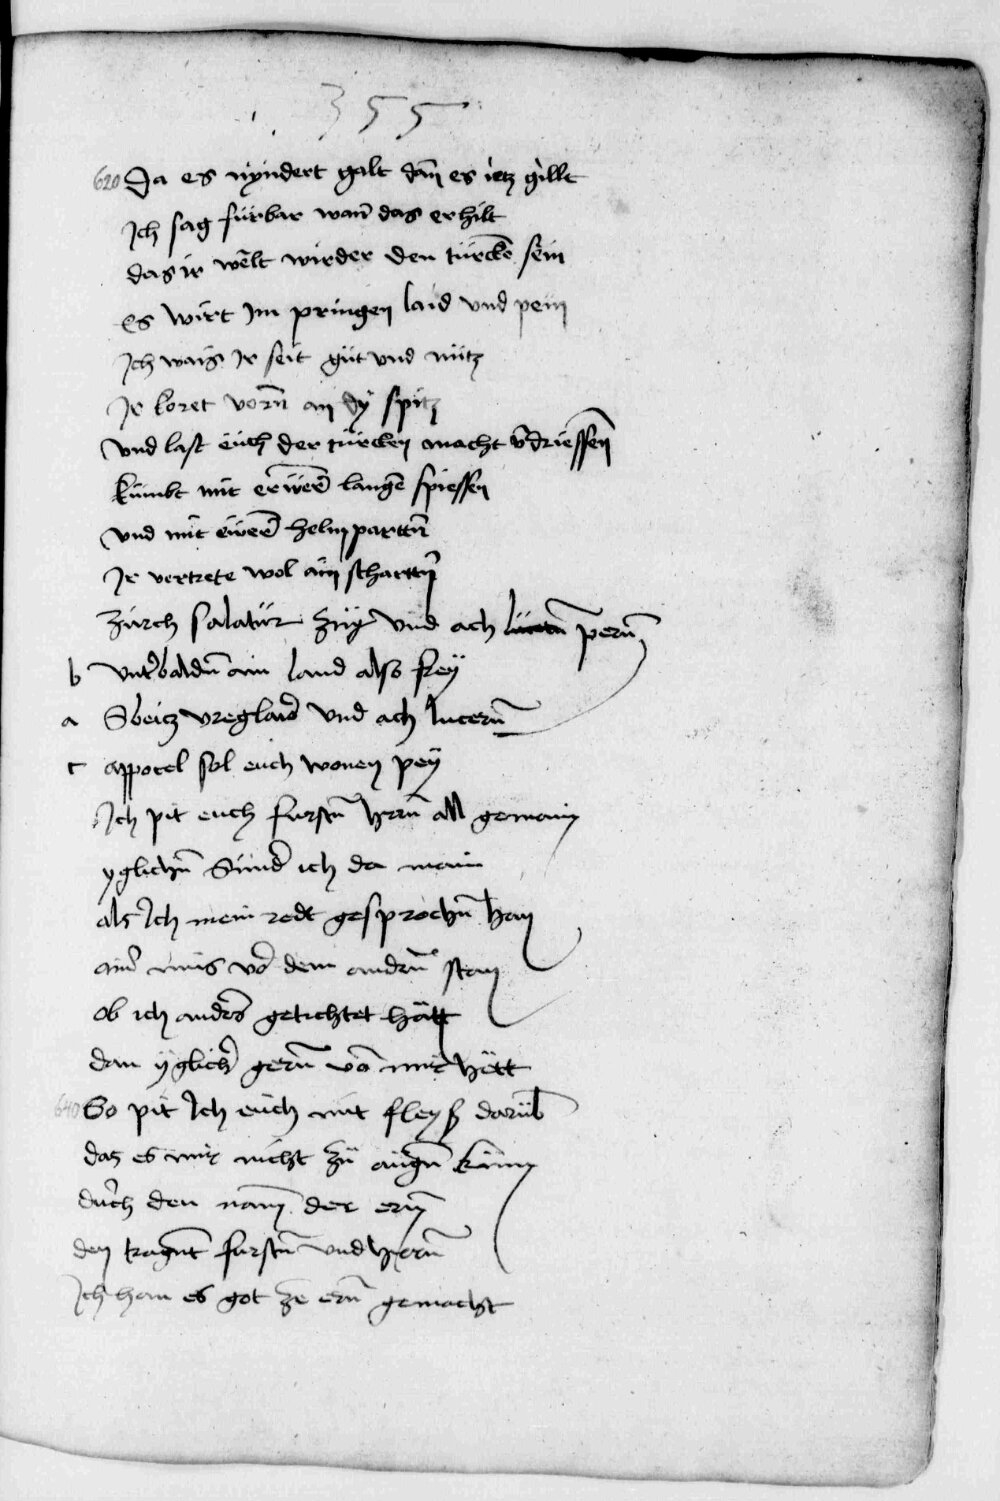 355
620 Da es nyndert galt dan̄ es ietz gillt
Ich sag fürbar wan̄ das erhilt
das ir welt wirder den türckē sein
Es wirt Im pringen laid vnd pein
Ich wais Ir seit güt vnd nütz
Ir koret vorn̄ an dÿ spitz
vnd last euch der türcken macht v̄driessen̄
kumbt mit langē spiessen
vnd mit ewerē helmpartn̄
Ir vertrete wol ain schartn̄
Zürch salatür Züg vnd ach pern̄
b vnt̄baldn̄ ain land also freÿ
a Sbeitz vreglaris vnd ach lucern̄
c appocel sol euch wonen peÿ
Ich pit euch furstn̄ hrrn̄ all gemain
yglichn̄ Sund̄ ich da main
als Ich mein redt gesprochn̄ han
ain̄ mus vō dem andrn̄ stan
ob ich andrs getichtet hätt
dan ÿglich̄ gern̄ vō mir hett
640 So pit Ich euch mit fleyß darüb̄
das es mir nicht zü augn̄ kum
durch den nam̄ der ern̄
den tragnt̄ furstn̄ vnd hern̄
Ich han es got ze ern̄ gemacht